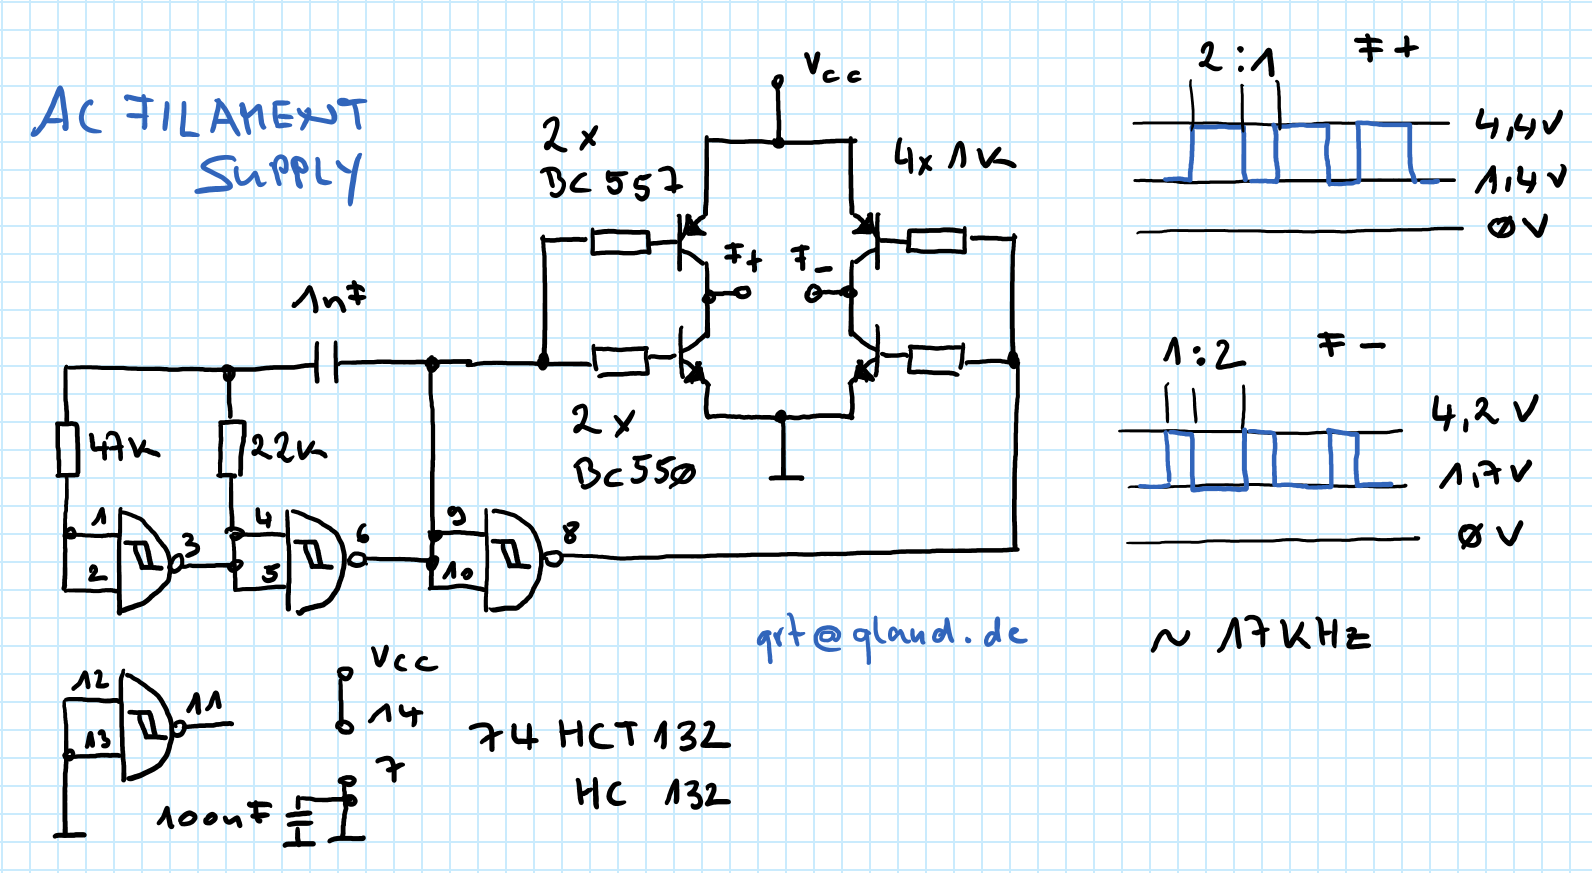 AC FILAMENT
SUPPLY
Vcc
2 x
BC 557
4x 1k
F+
F-
1nF
47k
22k
2 x
BC 550
1
2
3
4
5
6
9
10
8
12
13
11
Vcc
14
7
100nF
74 HCT 132
HC 132
grt@gland.de
2:1
F+
4,4V
1,4V
0V
1:2
F-
4,2 V
1,7V
0 V
~ 17KHz